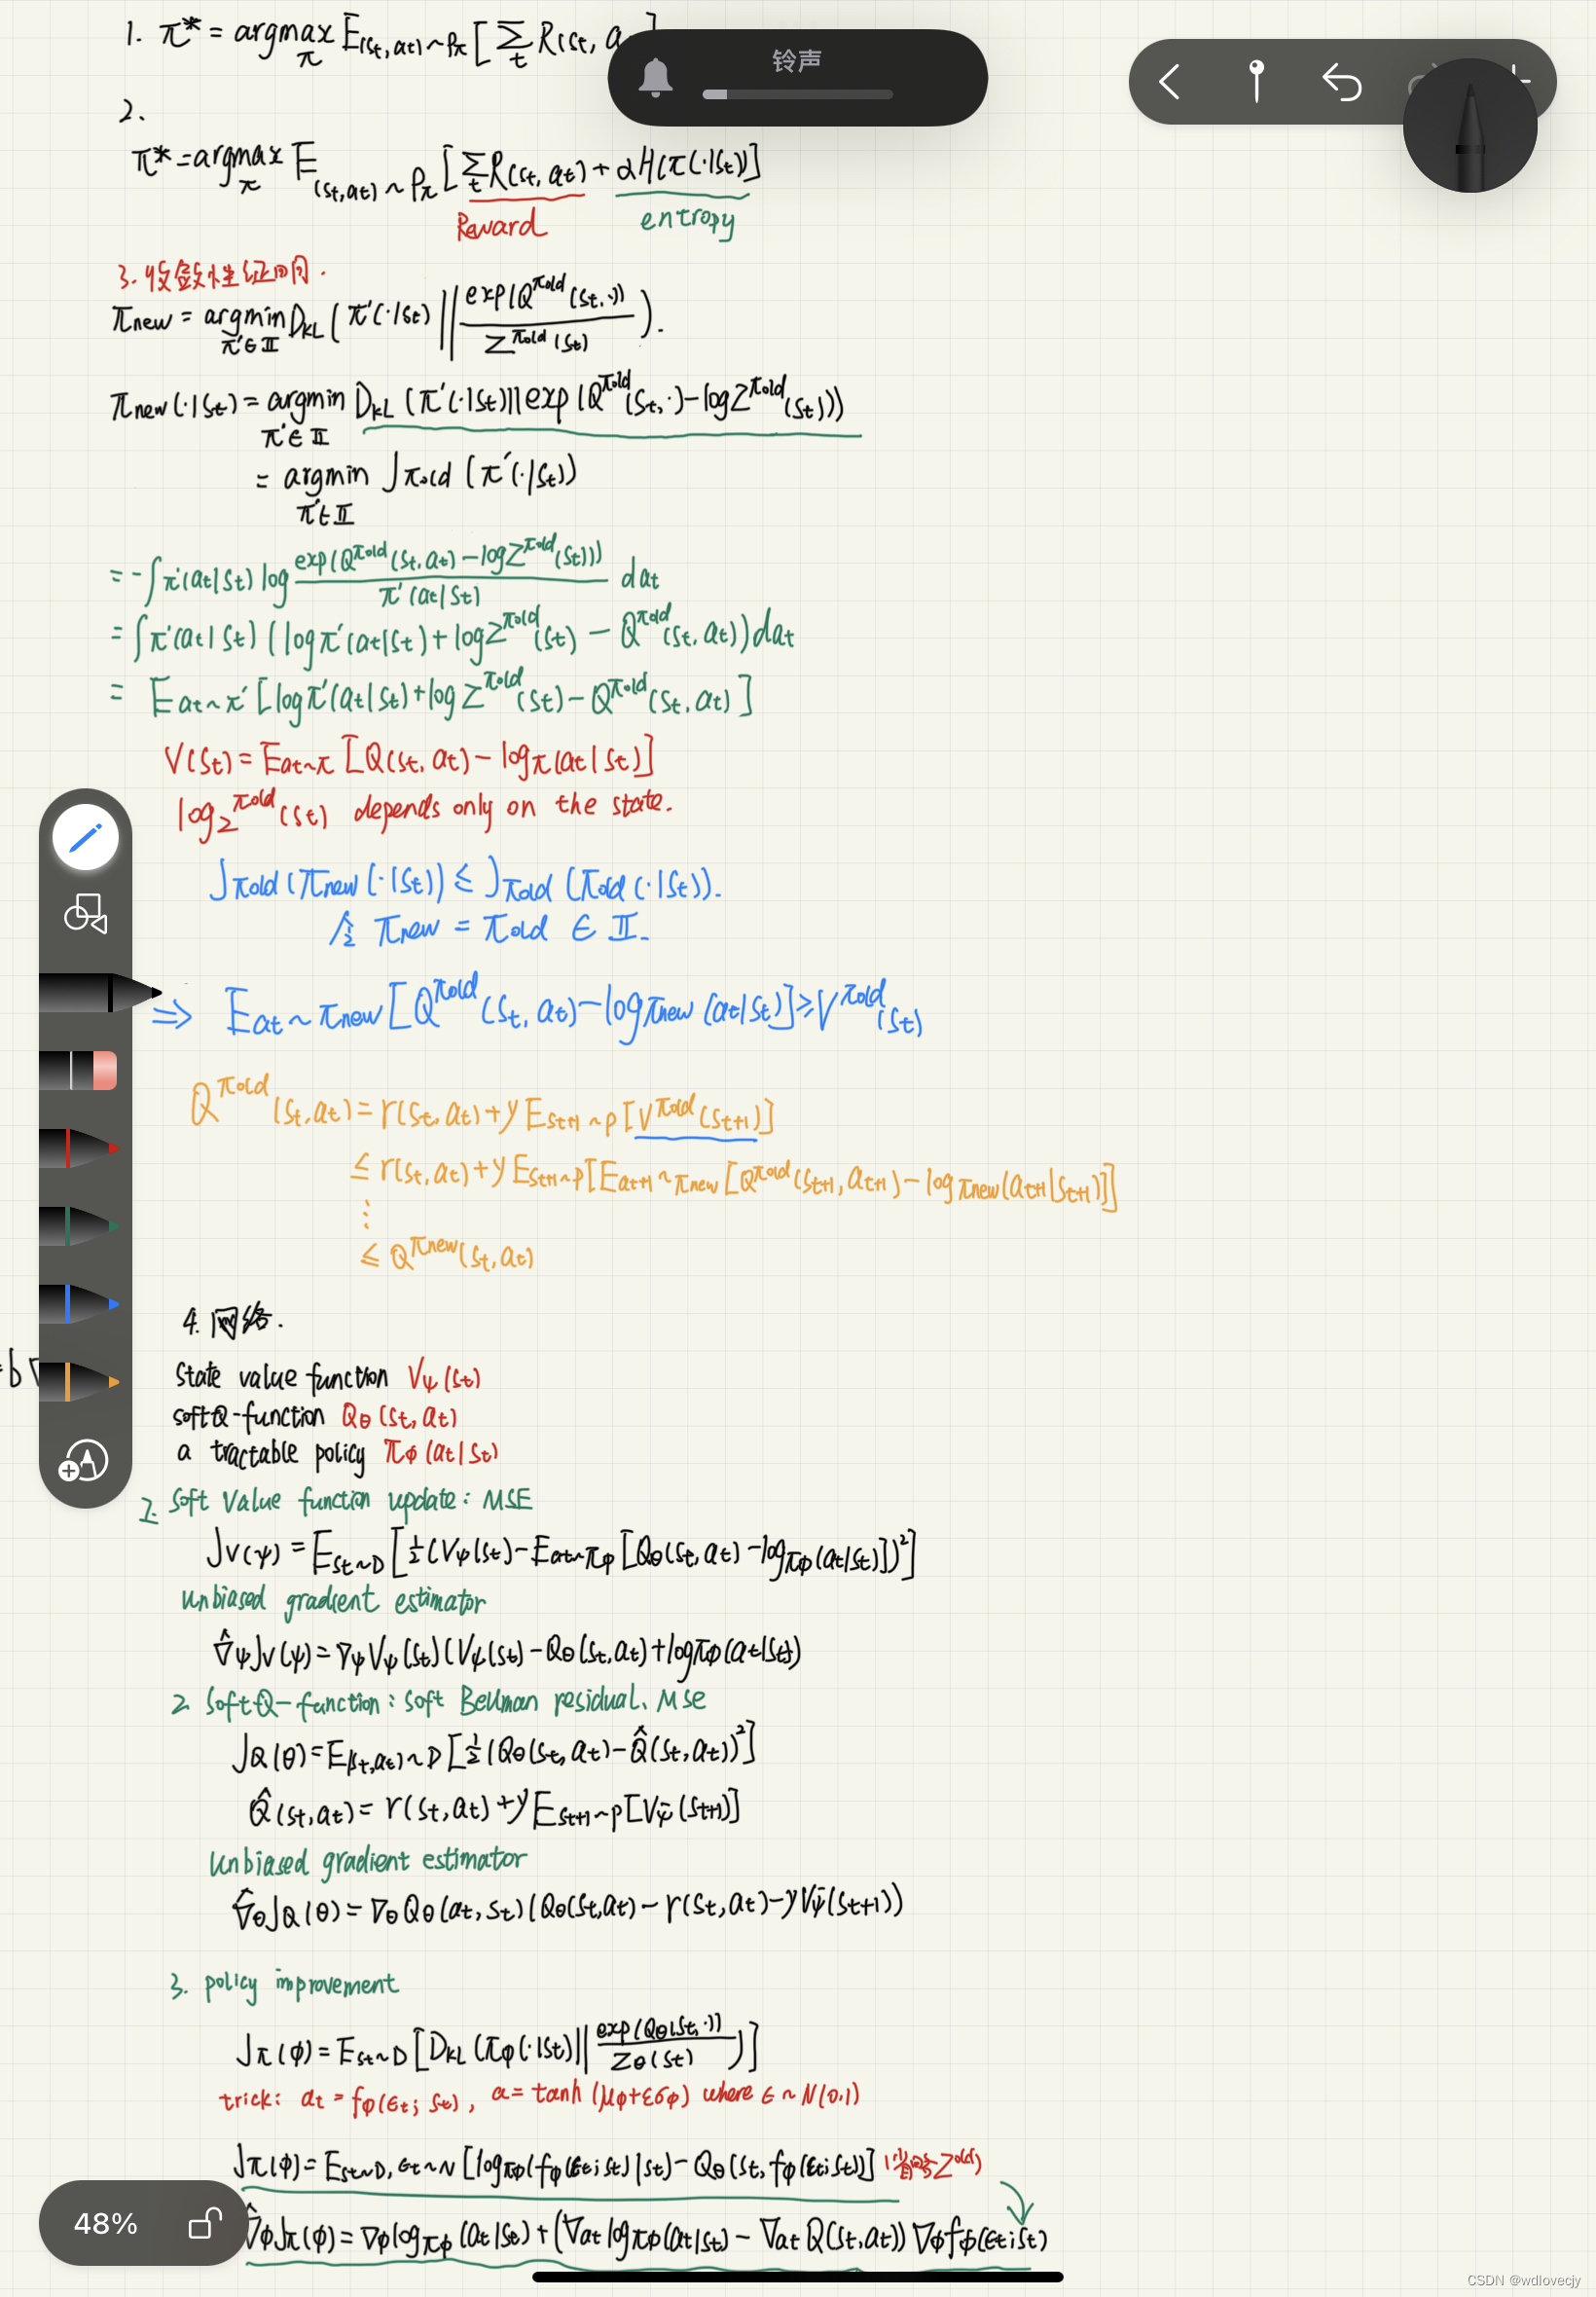 1. π* = argmax_π E_(st,at)~ρπ [ Σ_t R(st, a
铃声
2.
π* = argmax_π E_(st,at)~ρπ [ Σ_t R(st,at) + αH(π(·|st)) ]
Reward entropy
3. 收敛性证明.
πnew = argmin_π'∈Π DKL( π'(·|st) || exp(Q^πold(st,·)) / Z^πold(st) ).
πnew(·|st) = argmin_π'∈Π DKL(π'(·|st) || exp(Q^πold(st,·) - logZ^πold(st)))
= argmin_π'∈Π Jπold(π'(·|st))
= -∫π'(at|st) log exp(Q^πold(st,at) - logZ^πold(st)) / π'(at|st) dat
= ∫π'(at|st) (logπ'(at|st) + logZ^πold(st) - Q^πold(st,at)) dat
= E_at~π' [logπ'(at|st) + logZ^πold(st) - Q^πold(st,at)]
V(st) = E_at~π [Q(st,at) - logπ(at|st)]
logZ^πold(st) depends only on the state.
Jπold(πnew(·|st)) ≤ Jπold(πold(·|st)).
令 πnew = πold ∈ Π.
⇒ E_at~πnew [Q^πold(st,at) - logπnew(at|st)] ≥ V^πold(st)
Q^πold(st,at) = r(st,at) + γE_st+1~p [V^πold(st+1)]
≤ r(st,at) + γE_st+1~p [E_at+1~πnew [Q^πold(st+1,at+1) - logπnew(at+1|st+1)]]
⋮
≤ Q^πnew(st,at)
4. 网络.
State value function Vψ(st)
soft Q-function Qθ(st,at)
a tractable policy πϕ(at|st)
1. Soft Value function update: MSE
Jv(ψ) = E_st~D [½(Vψ(st) - E_at~πϕ [Qθ(st,at) - logπϕ(at|st)])²]
Unbiased gradient estimator
∇̂ψJv(ψ) = ∇ψVψ(st)(Vψ(st) - Qθ(st,at) + logπϕ(at|st))
2. Soft Q-function: soft Bellman residual. MSE
JQ(θ) = E_(st,at)~D [½(Qθ(st,at) - Q̂(st,at))²]
Q̂(st,at) = r(st,at) + γE_st+1~p [Vψ̄(st+1)]
Unbiased gradient estimator
∇̂θJQ(θ) = ∇θQθ(at,st)(Qθ(st,at) - r(st,at) - γVψ̄(st+1))
3. policy improvement
Jπ(ϕ) = E_st~D [DKL(πϕ(·|st) || exp(Qθ(st,·)) / Zθ(st))]
trick: at = fϕ(εt; st), a = tanh(μϕ+εσϕ) where ε~N(0,1)
Jπ(ϕ) = E_st~D,εt~N [logπϕ(fϕ(εt;st)|st) - Qθ(st,fϕ(εt;st))] Z^old)
∇̂ϕJπ(ϕ) = ∇ϕlogπϕ(at|st) + (∇at logπϕ(at|st) - ∇at Q(st,at))∇ϕfϕ(εt;st)
48%
CSDN @wdlovecjy